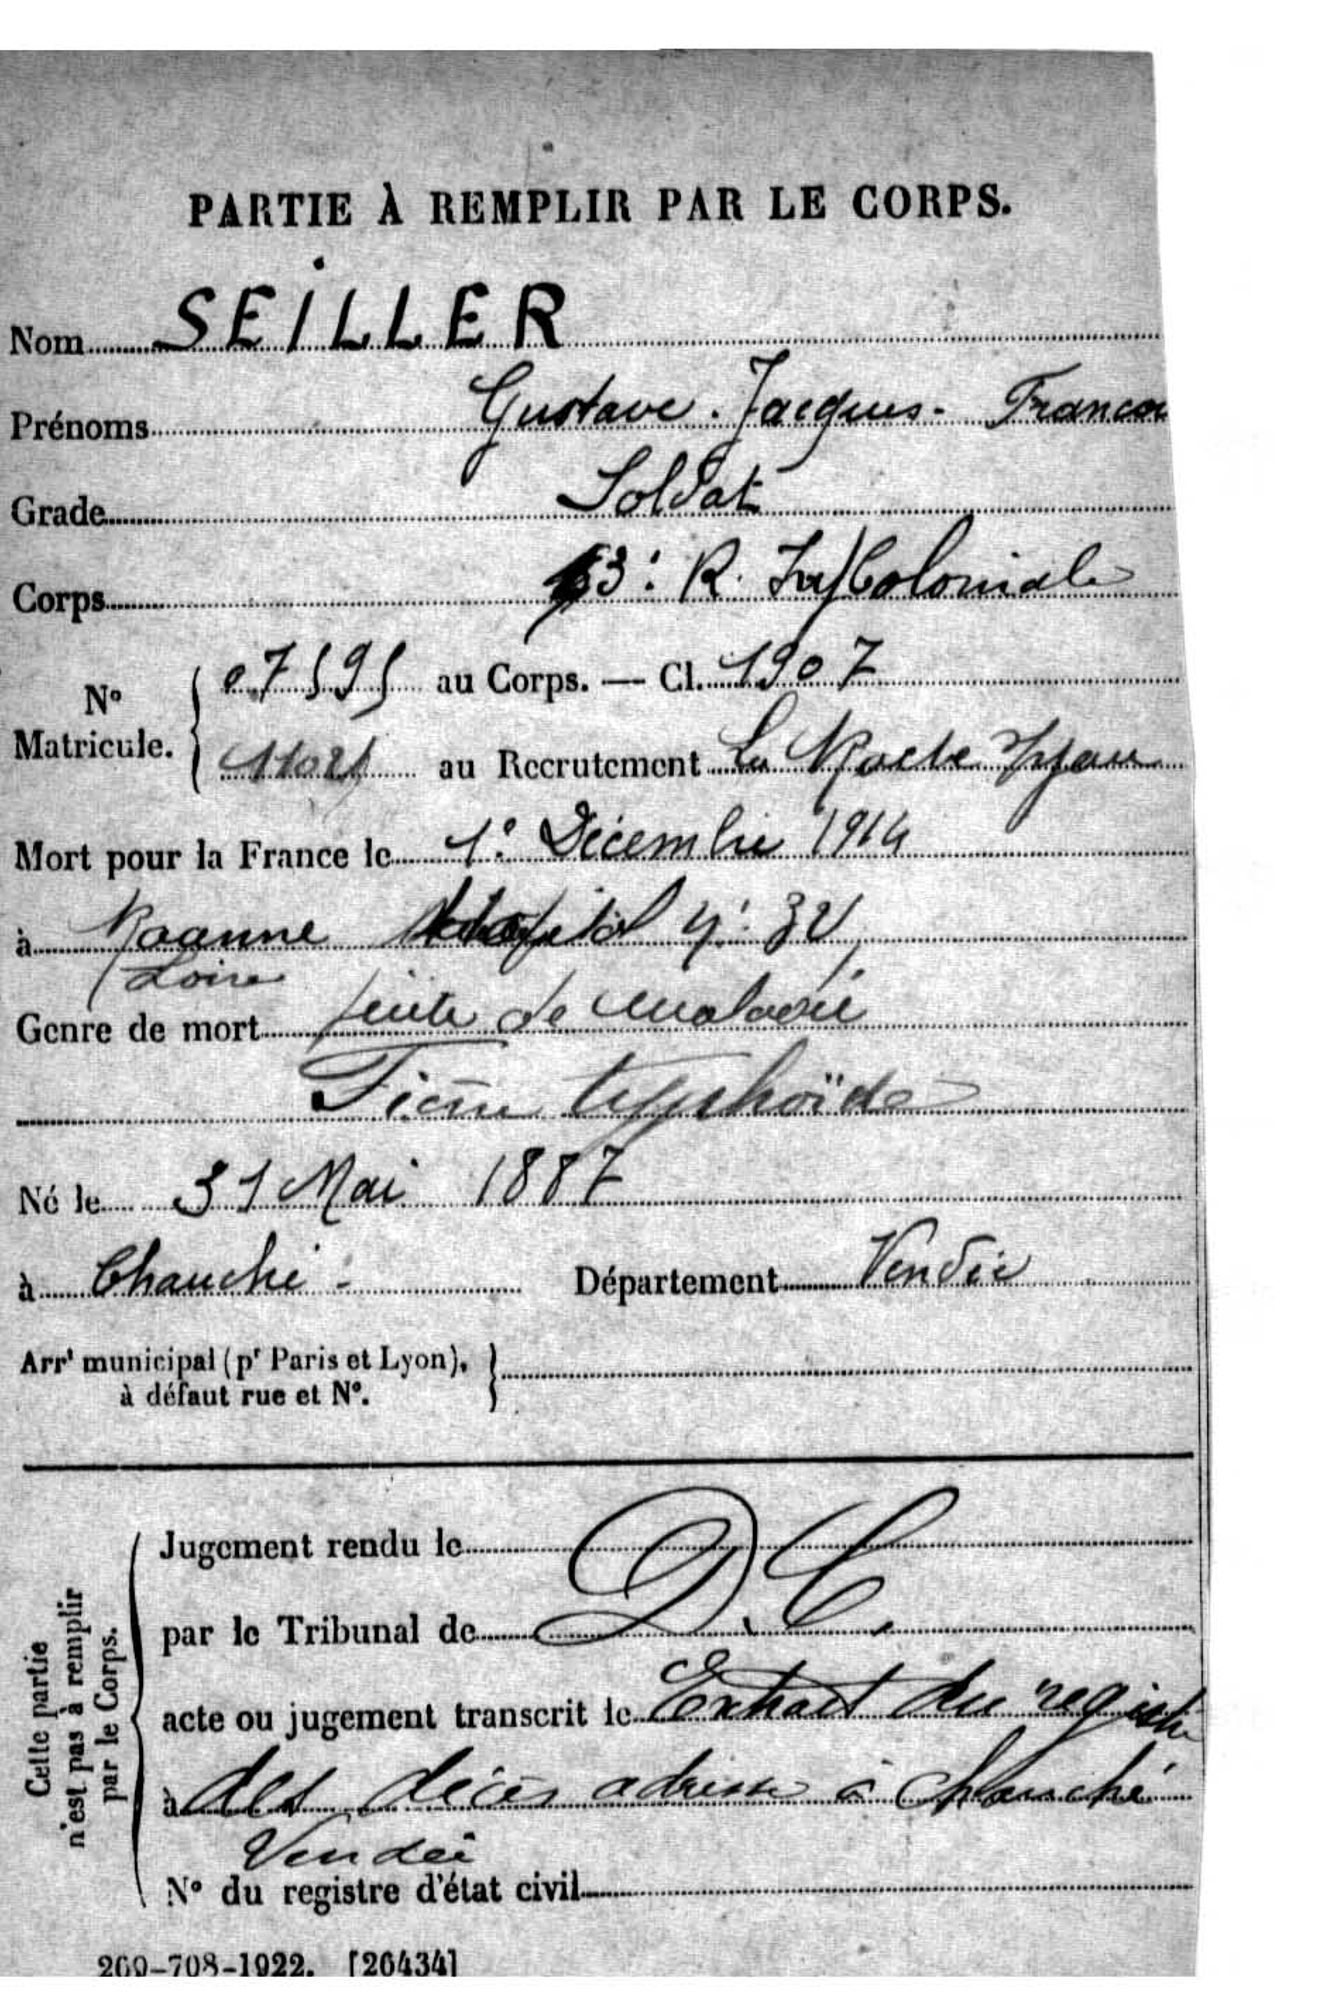 PARTIE À REMPLIR PAR LE CORPS.
Nom SEILLER
Prénoms Gustave. Jacques- Francois
Grade Soldat
Corps 3e R. Inf Coloniale
N° Matricule. 07595 au Corps. — Cl. 1907
au Recrutement La Roche s/yon
Mort pour la France le 1er Décembre 1914
à Roanne Hopital N° 32
Loire
Genre de mort suite de maladie
Fièvre typhoïde
Né le 31 Mai 1887
à Chauché - Département Vendée
Arrt municipal (pr Paris et Lyon),
à défaut rue et N°.
Cette partie
n'est pas à remplir
par le Corps.
Jugement rendu le
par le Tribunal de D.C.
acte ou jugement transcrit le Extrait du registre
à des décès adressé à Chauché
Vendée
N° du registre d'état civil
269-708-1922. [26434]